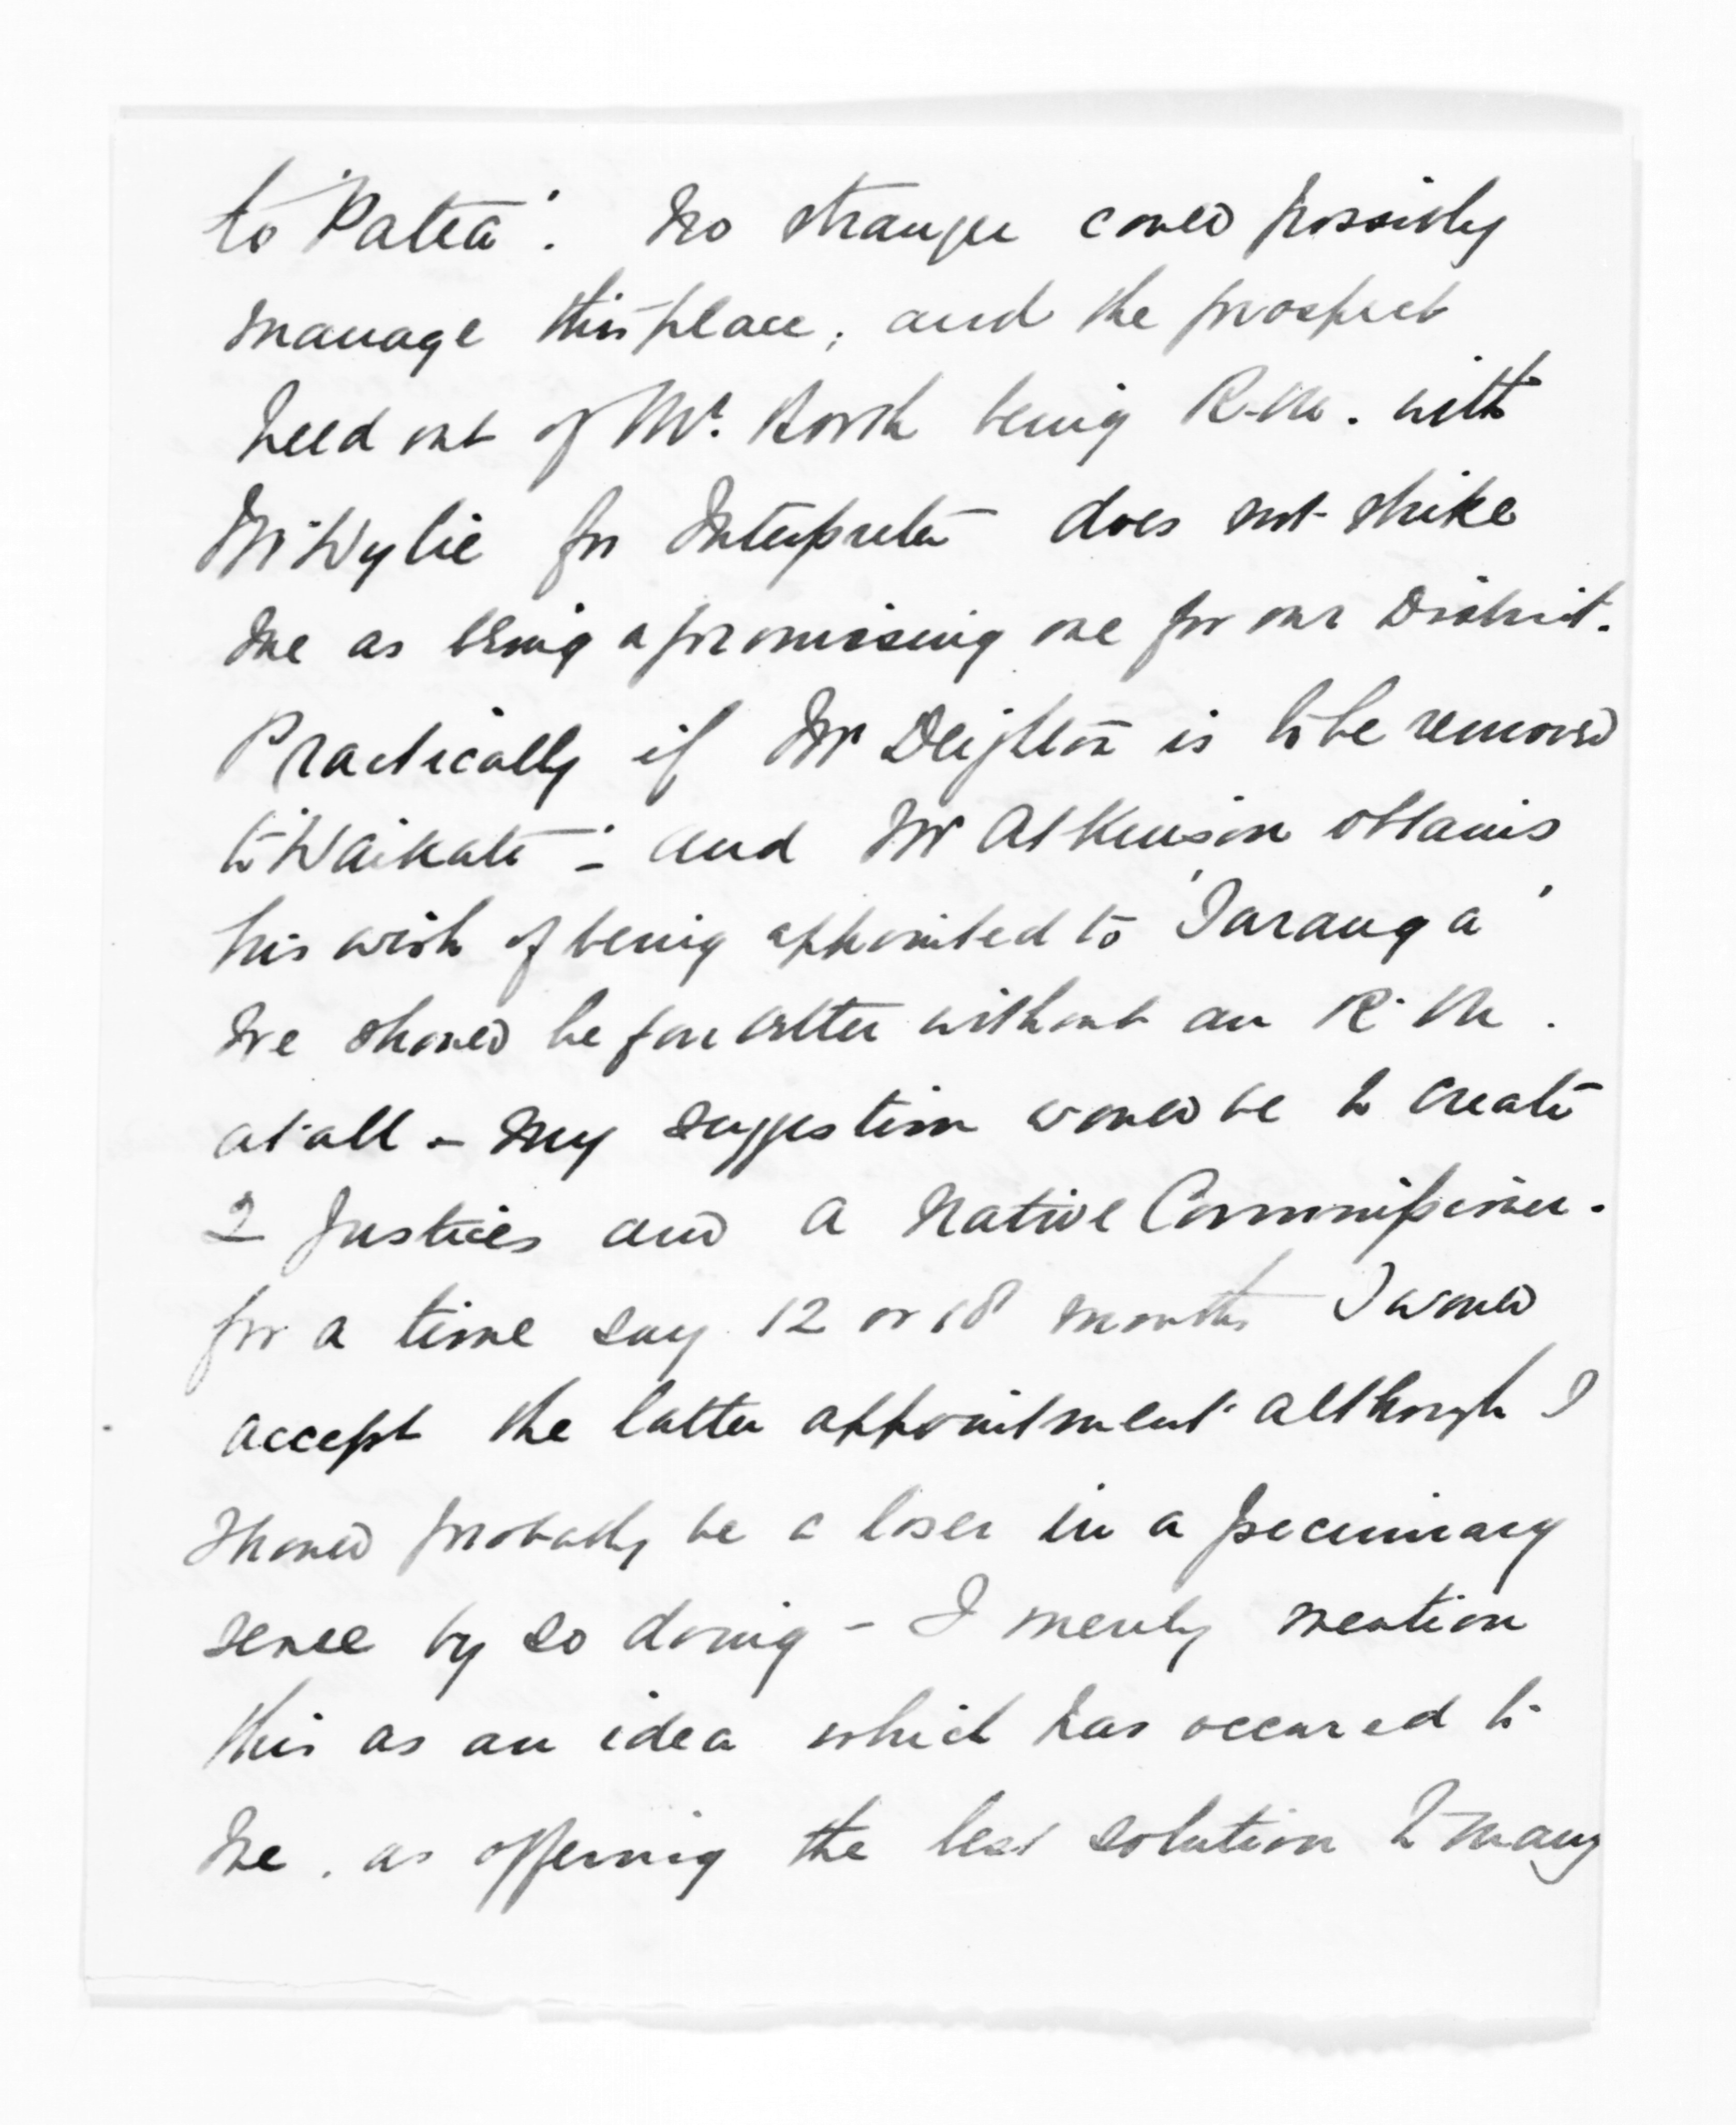 to "Patea". No stranger could possibly
manage this place; and the prospect
held out of Mr. Booth being R.M. with
Mr Wylie for Interpreter does not strike
me as being a promising one for our District.
Practically if Mr Deighton is to be removed
to "Waikato"- and Mr Atkinson obtains
his wish of being appointed to 'Turanga'
We should be far better without an R.M.
at all - My suggestion would be to create
2 Justices and a Native Commissioner.
for a time say 12 or 18 months I would
accept the latter appointment although I
should probably be a loser in a pecuniary
sense by so doing - I merely mention
this as an idea which has occured to
me. as offering the best solution to many